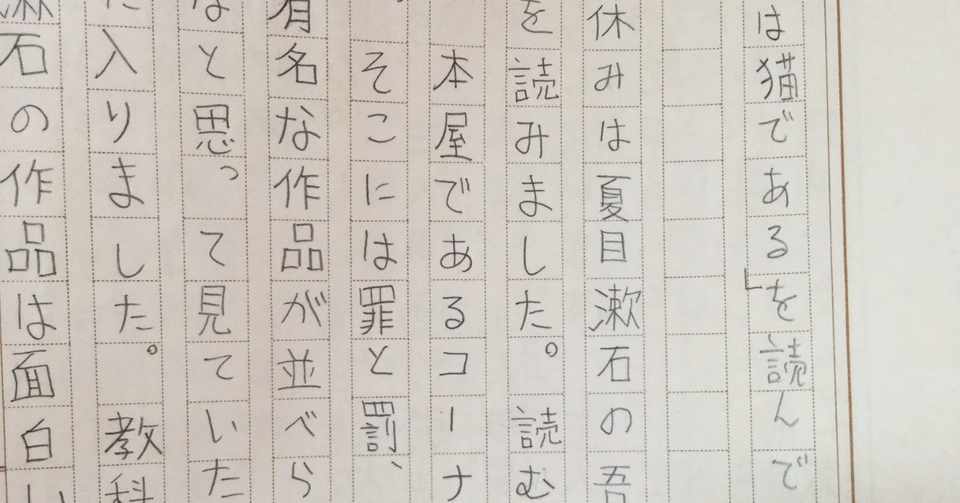 は猫である」を読んで
休みは夏目漱石の吾
を読みました。読む
本屋であるコーナ
。そこには罪と罰、
有名な作品が並べら
なと思って見ていた
に入りました。教科
石の作品は面白い